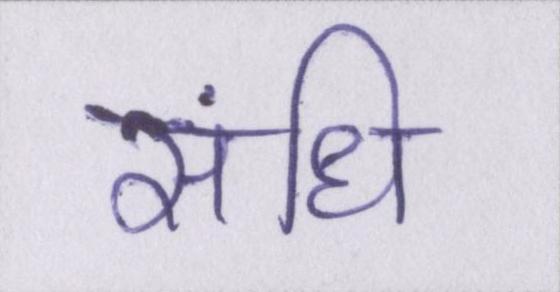 संधि